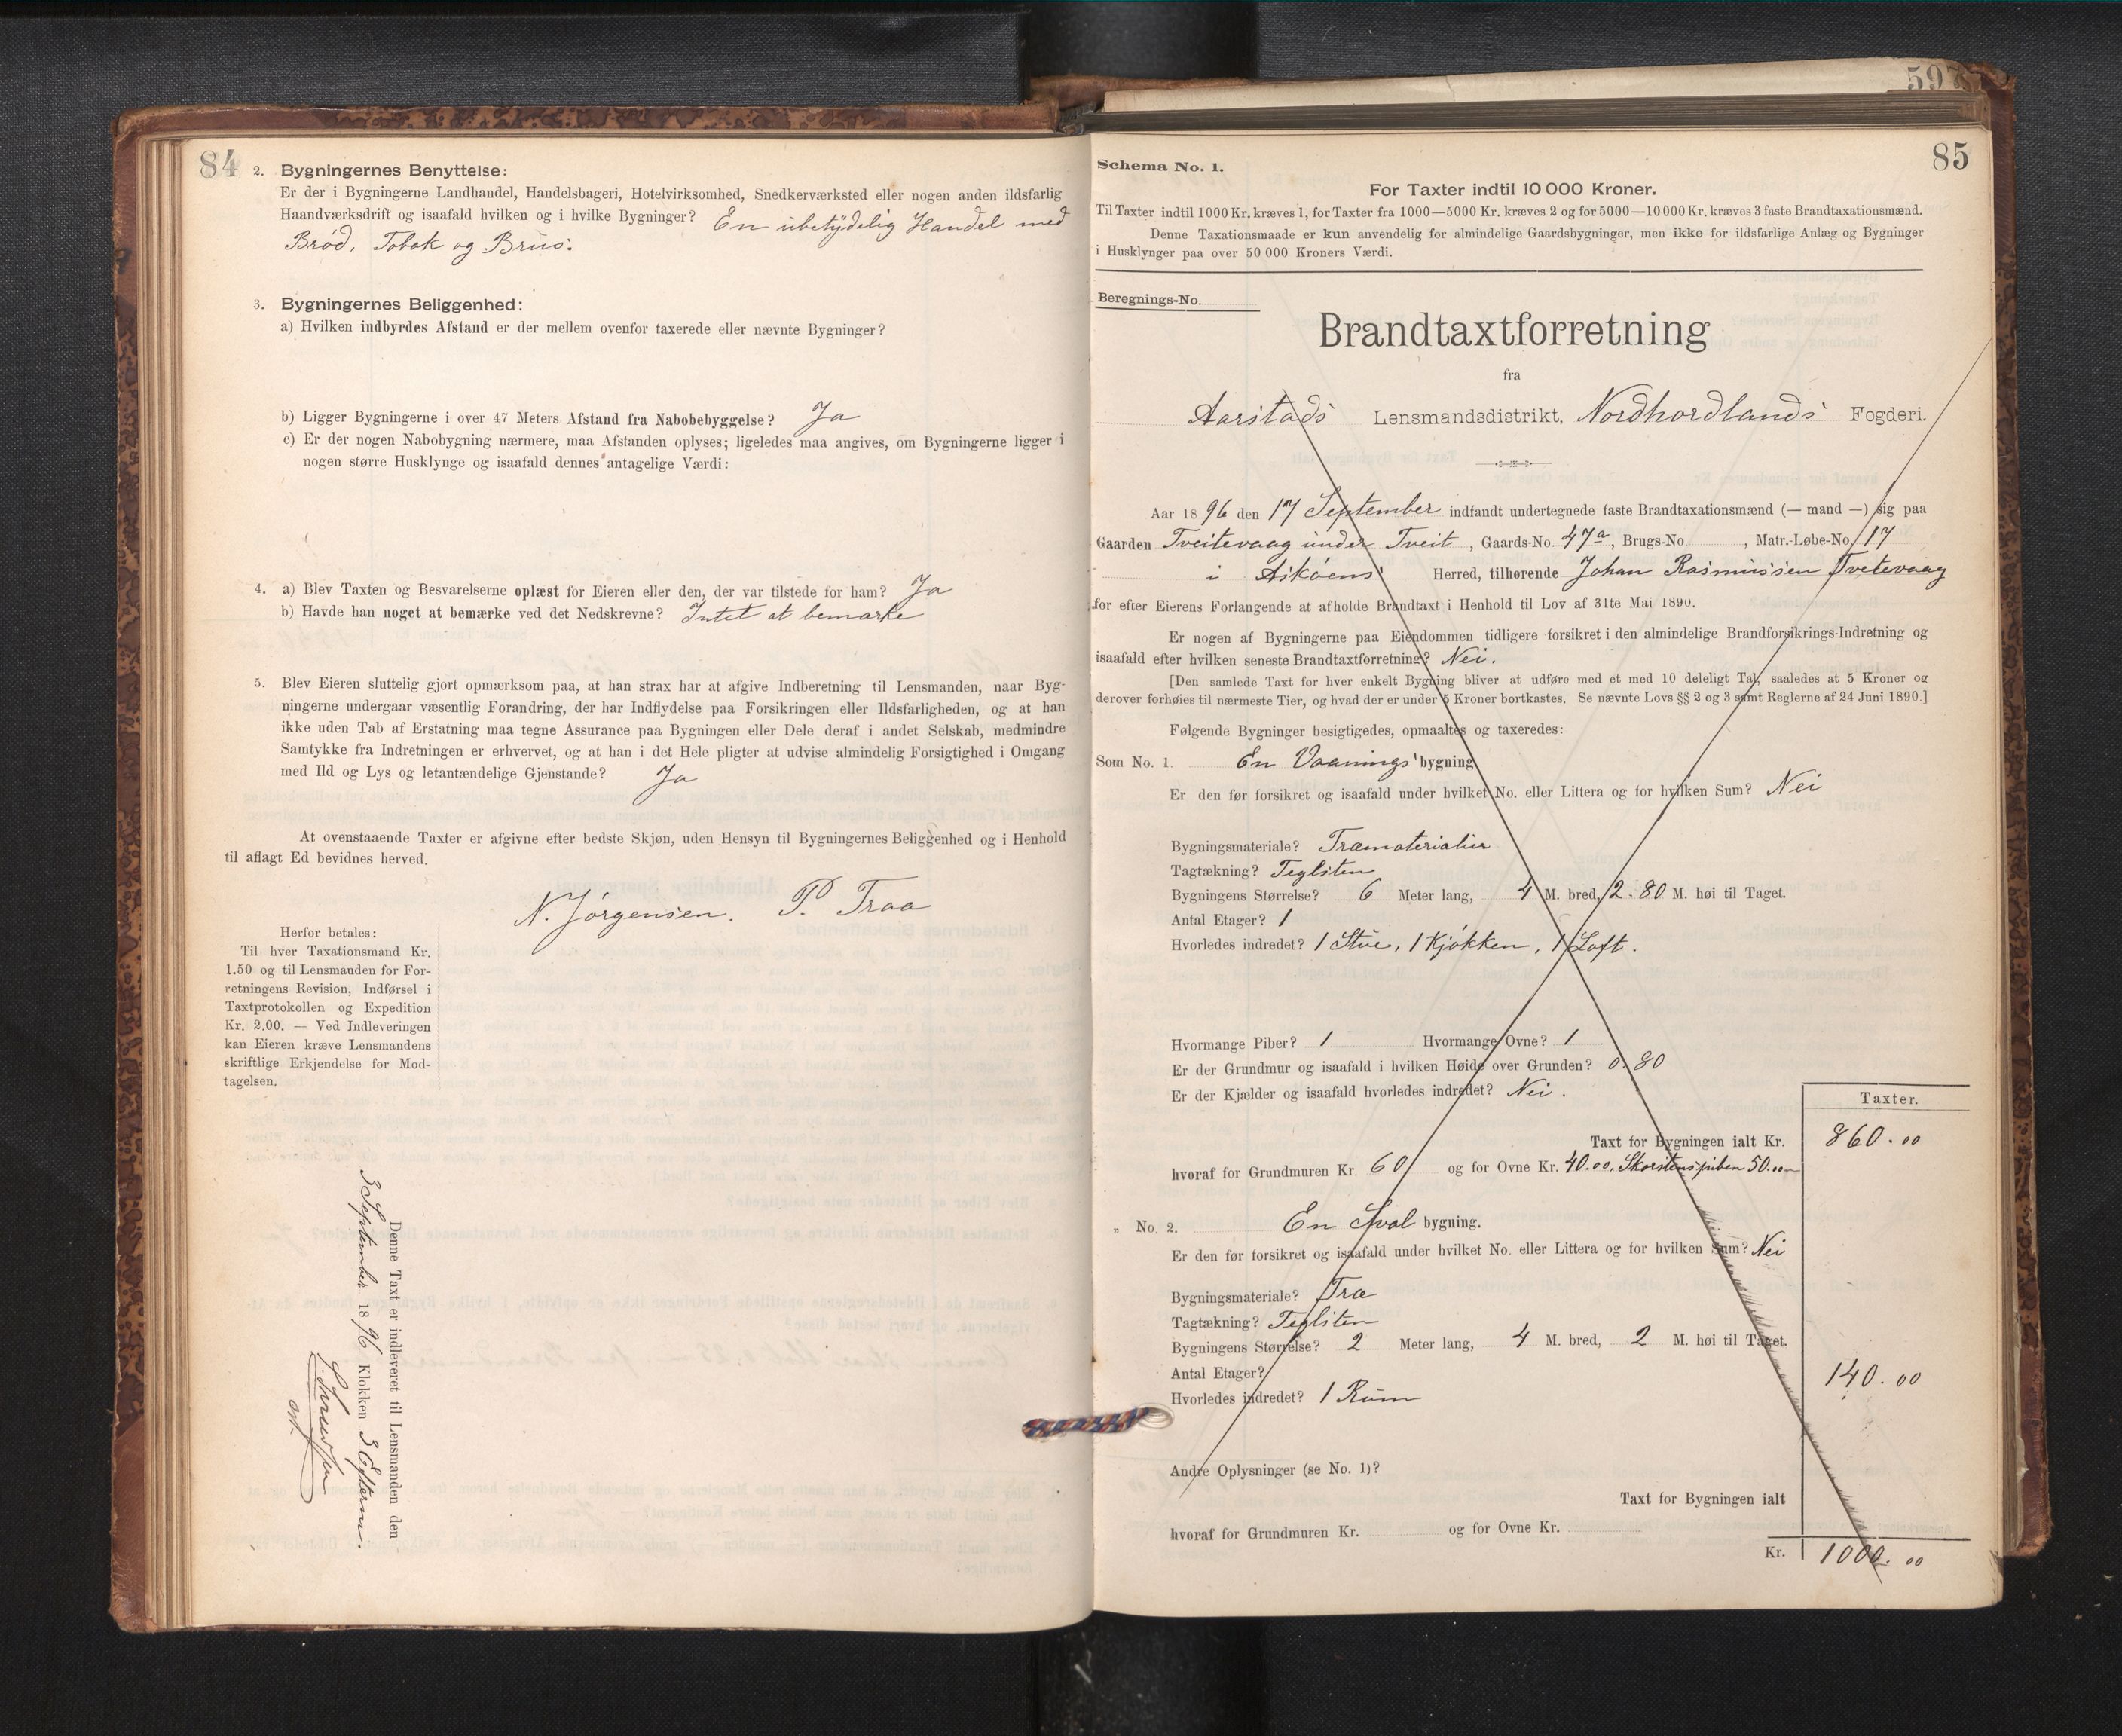 84
2. Bygningernes Benyttelse:
Er der i Bygningerne Landhandel, Handelsbageri, Hotelvirksomhed, Snedkerværksted eller nogen anden ildsfarlig
Haandværksdrift og isaafald hvilken og i hvilke Bygninger? En ubetydelig Handel med
Brød, Tobak og Brus.
3. Bygningernes Beliggenhed:
a) Hvilken indbyrdes Afstand er der mellem ovenfor taxerede eller nævnte Bygninger?
b) Ligger Bygningerne i over 47 Meters Afstand fra Nabobebyggelse? Ja
c) Er der nogen Nabobygning nærmere, maa Afstanden oplyses; ligeledes maa angives, om Bygningerne ligger i
nogen større Husklynge og isaafald dennes antagelige Værdi:
4. a) Blev Taxten og Besvarelserne oplæst for Eieren eller den, der var tilstede for ham? Ja
b) Havde han noget at bemærke ved det Nedskrevne? Intet at bemærke
5. Blev Eieren sluttelig gjort opmærksom paa, at han strax har at afgive Indberetning til Lensmanden, naar Byg-
ningerne undergaar væsentlig Forandring, der har Indflydelse paa Forsikringen eller Ildsfarligheden, og at han
ikke uden Tab af Erstatning maa tegne Assurance paa Bygningen eller Dele deraf i andet Selskab, medmindre
Samtykke fra Indretningen er erhvervet, og at han i det Hele pligter at udvise almindelig Forsigtighed i Omgang
med Ild og Lys og letantændelige Gjenstande? Ja
At ovenstaaende Taxter er afgivne efter bedste Skjøn, uden Hensyn til Bygningernes Beliggenhed og i Henhold
til aflagt Ed bevidnes herved.
N. Jørgensen. P. Traa
Herfor betales:
Til hver Taxationsmand Kr.
1.50 og til Lensmanden for For-
retningens Revision, Indførsel i
Taxtprotokollen og Expedition
Kr. 2.00. — Ved Indleveringen
kan Eieren kræve Lensmandens
skriftlige Erkjendelse for Mod-
tagelsen.
Denne Taxt er indleveret til Lensmanden den
3 September 1896 Klokken 3 Efterm.
85
Schema No. 1.
For Taxter indtil 10 000 Kroner.
Til Taxter indtil 1000 Kr. kræves 1, for Taxter fra 1000—5000 Kr. kræves 2 og for 5000—10000 Kr. kræves 3 faste Brandtaxationsmænd.
Denne Taxationsmaade er kun anvendelig for almindelige Gaardsbygninger, men ikke for ildsfarlige Anlæg og Bygninger
i Husklynger paa over 50 000 Kroners Værdi.
Beregnings-No.
Brandtaxtforretning
fra
Aarstads Lensmandsdistrikt, Nordhordlands Fogderi.
Aar 1896 den 17 September indfandt undertegnede faste Brandtaxationsmænd (— mand —) sig paa
Gaarden Tveitevaag under Tveit, Gaards-No. 47a, Brugs-No. , Matr.-Løbe-No. 17
i Askøens Herred, tilhørende Johan Rasmussen Tvetevaag
for efter Eierens Forlangende at afholde Brandtaxt i Henhold til Lov af 31te Mai 1890.
Er nogen af Bygningerne paa Eiendommen tidligere forsikret i den almindelige Brandforsikrings-Indretning og
isaafald efter hvilken seneste Brandtaxtforretning? Nei.
[Den samlede Taxt for hver enkelt Bygning bliver at udføre med et med 10 deleligt Tal, saaledes at 5 Kroner og
derover forhøies til nærmeste Tier, og hvad der er under 5 Kroner bortkastes. Se nævnte Lovs §§ 2 og 3 samt Reglerne af 24 Juni 1890.]
Følgende Bygninger besigtigedes, opmaaltes og taxeredes:
Som No. 1. En Vaanings bygning
Er den før forsikret og isaafald under hvilket No. eller Littera og for hvilken Sum? Nei
Bygningsmateriale? Træmaterialier
Tagtækning? Teglsten
Bygningens Størrelse? 6 Meter lang, 4 M. bred, 2.80 M. høi til Taget.
Antal Etager? 1
Hvorledes indredet? 1 Stue, 1 Kjøkken, 1 Loft.
Hvormange Piber? 1 Hvormange Ovne? 1
Er der Grundmur og isaafald i hvilken Høide over Grunden? 0.80
Er der Kjælder og isaafald hvorledes indredet? Nei.
Taxter.
Taxt for Bygningen ialt Kr. 860.00
hvoraf for Grundmuren Kr. 60 og for Ovne Kr. 40.00, Skorstenspiben 50.00
„ No. 2. En Sval bygning.
Er den før forsikret og isaafald under hvilket No. eller Littera og for hvilken Sum? Nei
Bygningsmateriale? Træ
Tagtækning? Teglsten
Bygningens Størrelse? 2 Meter lang, 4 M. bred, 2 M. høi til Taget.
Antal Etager? 140.00
Hvorledes indredet? 1 Rum
Andre Oplysninger (se No. 1)?
Taxt for Bygningen ialt
hvoraf for Grundmuren Kr. og for Ovne Kr.
Kr. 1000.00